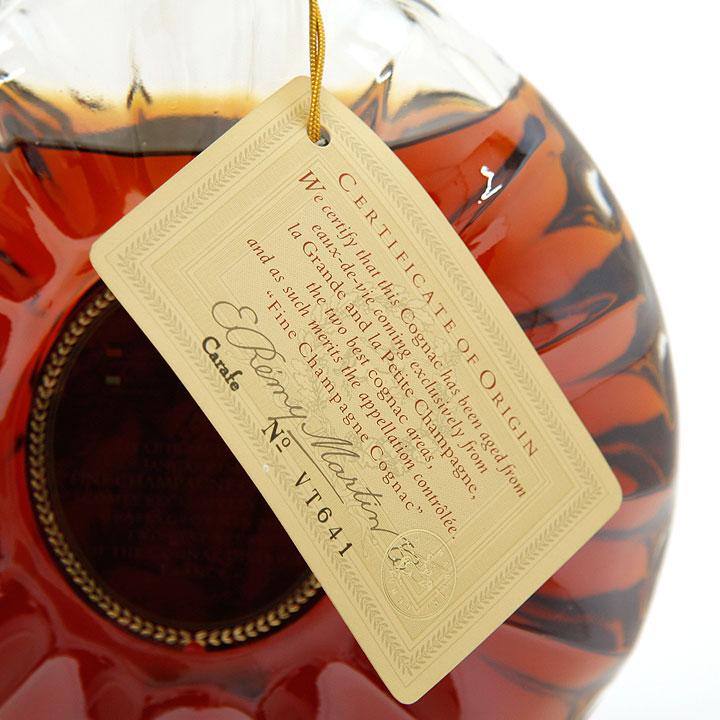 CERTIFICATE OF ORIGIN
We certify that this Cognac has been aged from
eaux-de-vie coming exclusively from
la Grande and la Petite Champagne,
the two best cognac areas,
and as such merits the appellation contrôlée.
"Fine Champagne Cognac"
E. Rémy Martin & Co
Carafe Nº VT641